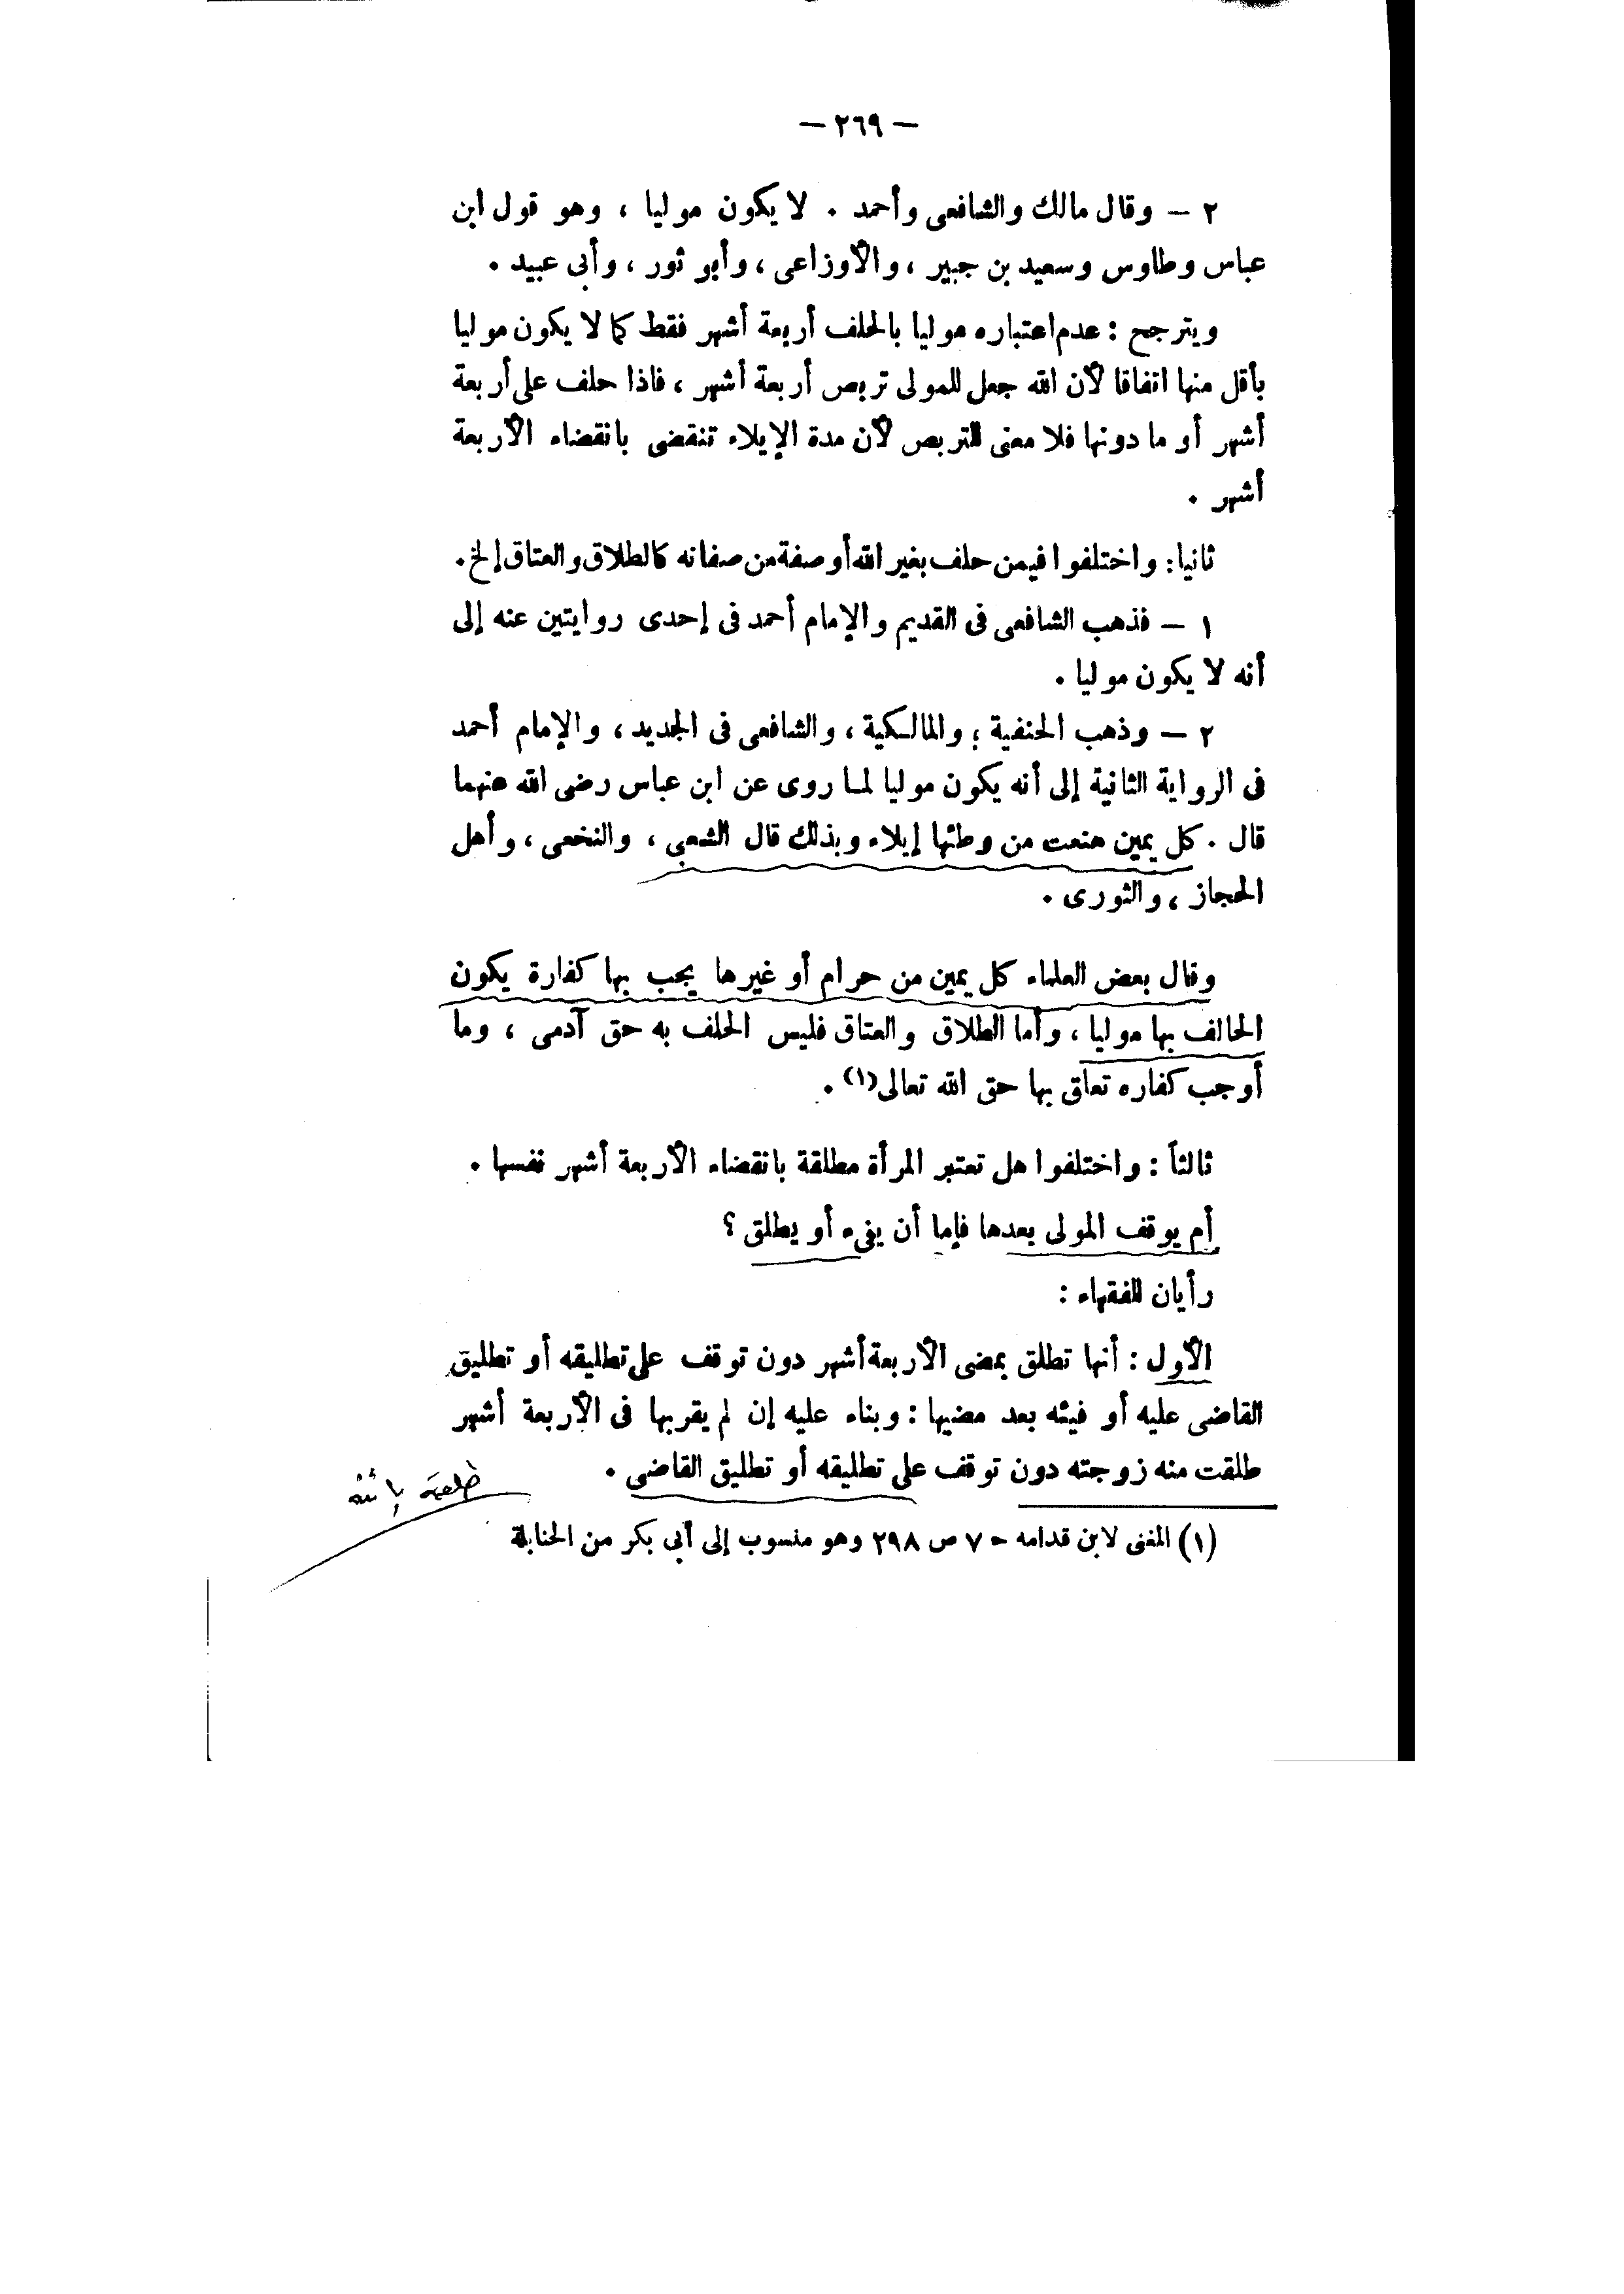 — ٢٦٩ —
٢ — وقال مالك والشافعى وأحمد . لا يكون موليا ، وهو قول ابن
عباس وطاوس وسعيد بن جبير ، والأوزاعى ، وأبو ثور ، وأبى عبيد .
ويترجح : عدم اعتباره موليا بالحلف أربعة أشهر فقط كما لا يكون موليا
بأقل منها اتفاقا لأن الله جعل للمولى تربص أربعة أشهر ، فاذا حلف على أربعة
أشهر أو ما دونها فلا معنى للتربص لأن مدة الإيلاء تنقضى بانقضاء الأربعة
أشهر .
ثانيا : واختلفوا فيمن حلف بغير الله أو صفة من صفاته كالطلاق والعتاق إلخ .
١ — فذهب الشافعى فى القديم والإمام أحمد فى إحدى روايتين عنه إلى
أنه لا يكون موليا .
٢ — وذهب الحنفية ؛ والمالكية ، والشافعى فى الجديد ، والإمام أحمد
فى الرواية الثانية إلى أنه يكون موليا لما روى عن ابن عباس رضى الله عنهما
قال . كل يمين منعت من وطئها إيلاء وبذلك قال الشعبى ، والنخعى ، وأهل
الحجاز ، والثورى .
وقال بعض العلماء كل يمين من حرام أو غيرها يجب بها كفارة يكون
الحالف بها موليا ، وأما الطلاق والعتاق فليس الحلف به حق آدمى ، وما
أوجب كفاره تعلق بها حق الله تعالى (١) .
ثالثاً : واختلفوا هل تعتبر المرأة مطلقة بانقضاء الأربعة أشهر نفسها .
أم يوقف المولى بعدها فإما أن يفىء أو يطلق ؟
رأيان للفقهاء :
الأول : أنها تطلق بمضى الأربعة أشهر دون توقف على تطليقه أو تطليق
القاضى عليه أو فيئه بعد مضيها : وبناء عليه إن لم يقربها فى الأربعة أشهر
طلقت منه زوجته دون توقف على تطليقه أو تطليق القاضى .
طلقة بائنة
(١) المغنى لابن قدامه ح ٧ ص ٢٩٨ وهو منسوب إلى أبى بكر من الحنابلة